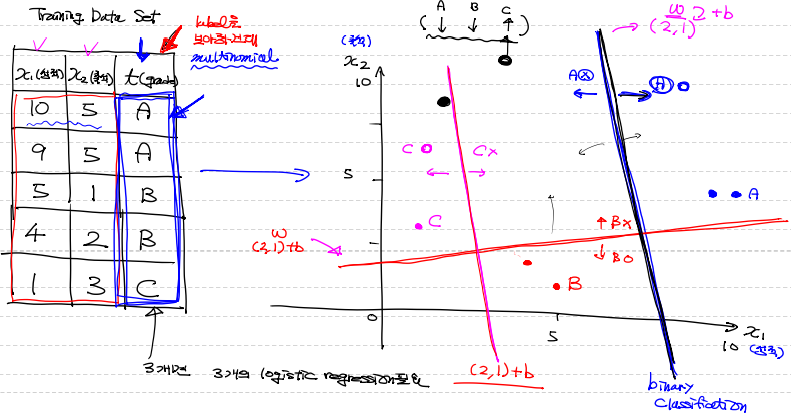 Training Data Set
label을
보아하건대
multinomial
x₁(성적) x₂(출석) t(grade)
10 5 A
9 5 A
5 1 B
4 2 B
1 3 C
3개의 logistic regression필요
A B C
( )
(출석)
x₂
10
5
0
5
10
x₁
(성적)
w x + b
(2,1)
A ⓧ
A
A
C
C x
C
w
(2,1)+b
B x
B o
B
(2,1)+b
binary
classification